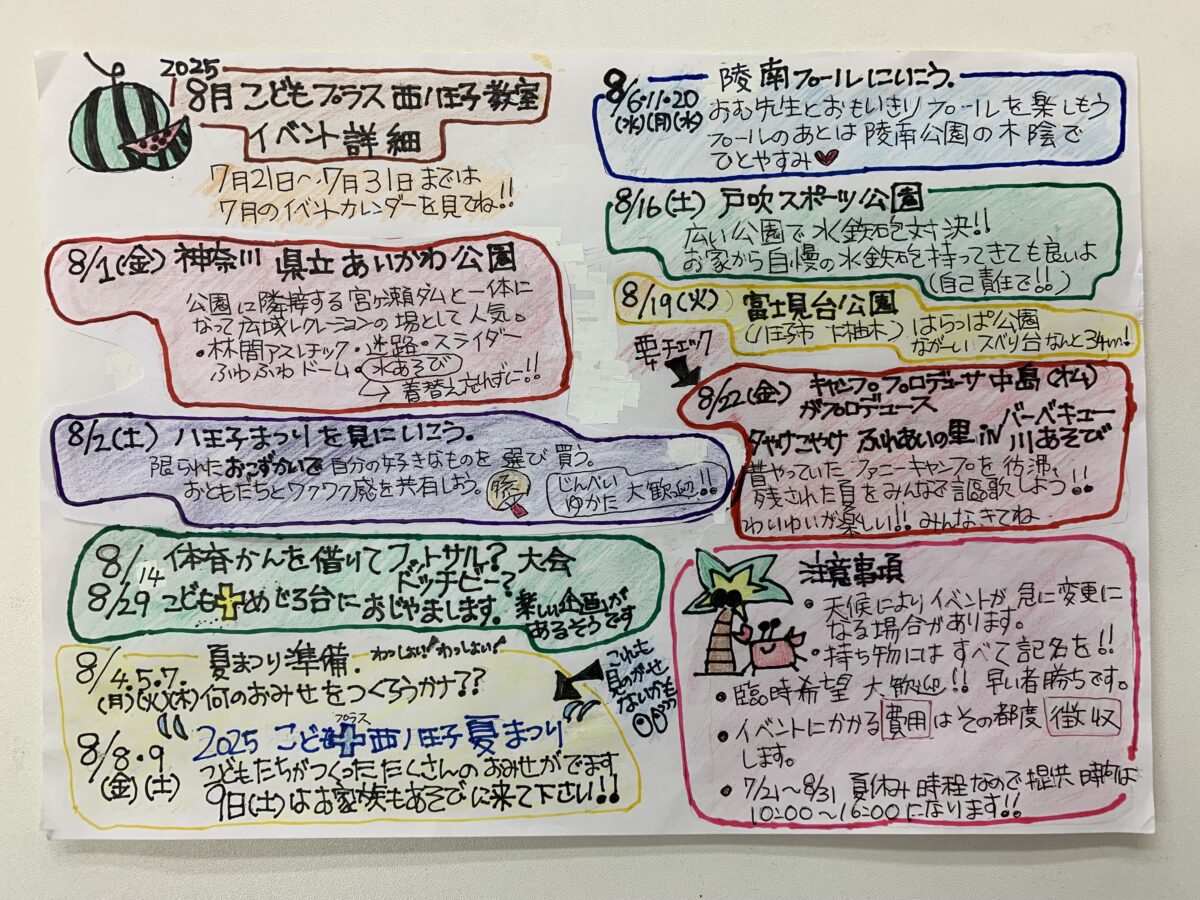 2025
8月 こどもプラス 西八王子 教室
イベント 詳細
7月21日〜7月31日までは
7月のイベントカレンダーを見てね!!
8/1(金) 神奈川 県立 あいかわ 公園
公園に隣接する 宮ヶ瀬ダムと一体に
なって広域レクレーションの場として人気。
・林間アスレチック・迷路・スライダー
ふわふわドーム・水あそび
→着替え忘れずに!!
8/2(土) 八王子まつりを見にいこう。
限られたおこずかいで自分の好きなものを 選び 買う。
おともだちとワクワク感を共有しよう。
じんべい
ゆかた 大歓迎!!
8/14
8/29
体育かんを借りてフットサル? 大会
ドッチビー?
こども+めじろ台におじゃまします。
楽しい企画が
あるそうです
8/4.5.7.
(月)(火)(木)
夏まつり準備.
わっしょい! わっしょい!
何のおみせをつくろうかナ??
これも
見のがせ
ないかも
8/8・9
(金)(土)
プラス
2025 こども+西八王子 夏まつり
こどもたちがつくったたくさんのおみせがでます
9日(土)はお家族もあそびに来て下さい!!
8/6・11・20
(水)(月)(水)
陵南プールにいこう.
おむ先生とおもいきりプールを楽しもう
プールのあとは陵南公園の木陰で
ひとやすみ♥
8/16(土) 戸吹スポーツ公園
広い公園で水鉄砲対決!!
お家から自慢の水鉄砲持ってきても良いよ
(自己責任で!!)
8/19(火) 富士見台公園
(八王子市 下柚木) はらっぱ公園
ながーい スベリ台なんと34m!
要チェック
8/22(金) キャンププロデューサ 中島(オム)
がプロデュース
夕やけこやけ ふれあいの里 in バーベキュー
川あそび
昔やっていた ファニーキャンプを彷彿。
残された夏をみんなで謳歌しよう!!
わいわいが楽しい!! みんなきてね
注意事項
・天候によりイベントが急に変更に
なる場合があります。
・持ち物には すべて記名を!!
・臨時希望 大歓迎!! 早い者勝ちです。
・イベントにかかる費用はその都度徴収
します。
・7/21〜8/31 夏休み時程なので提供時間は
10:00〜16:00になります!!